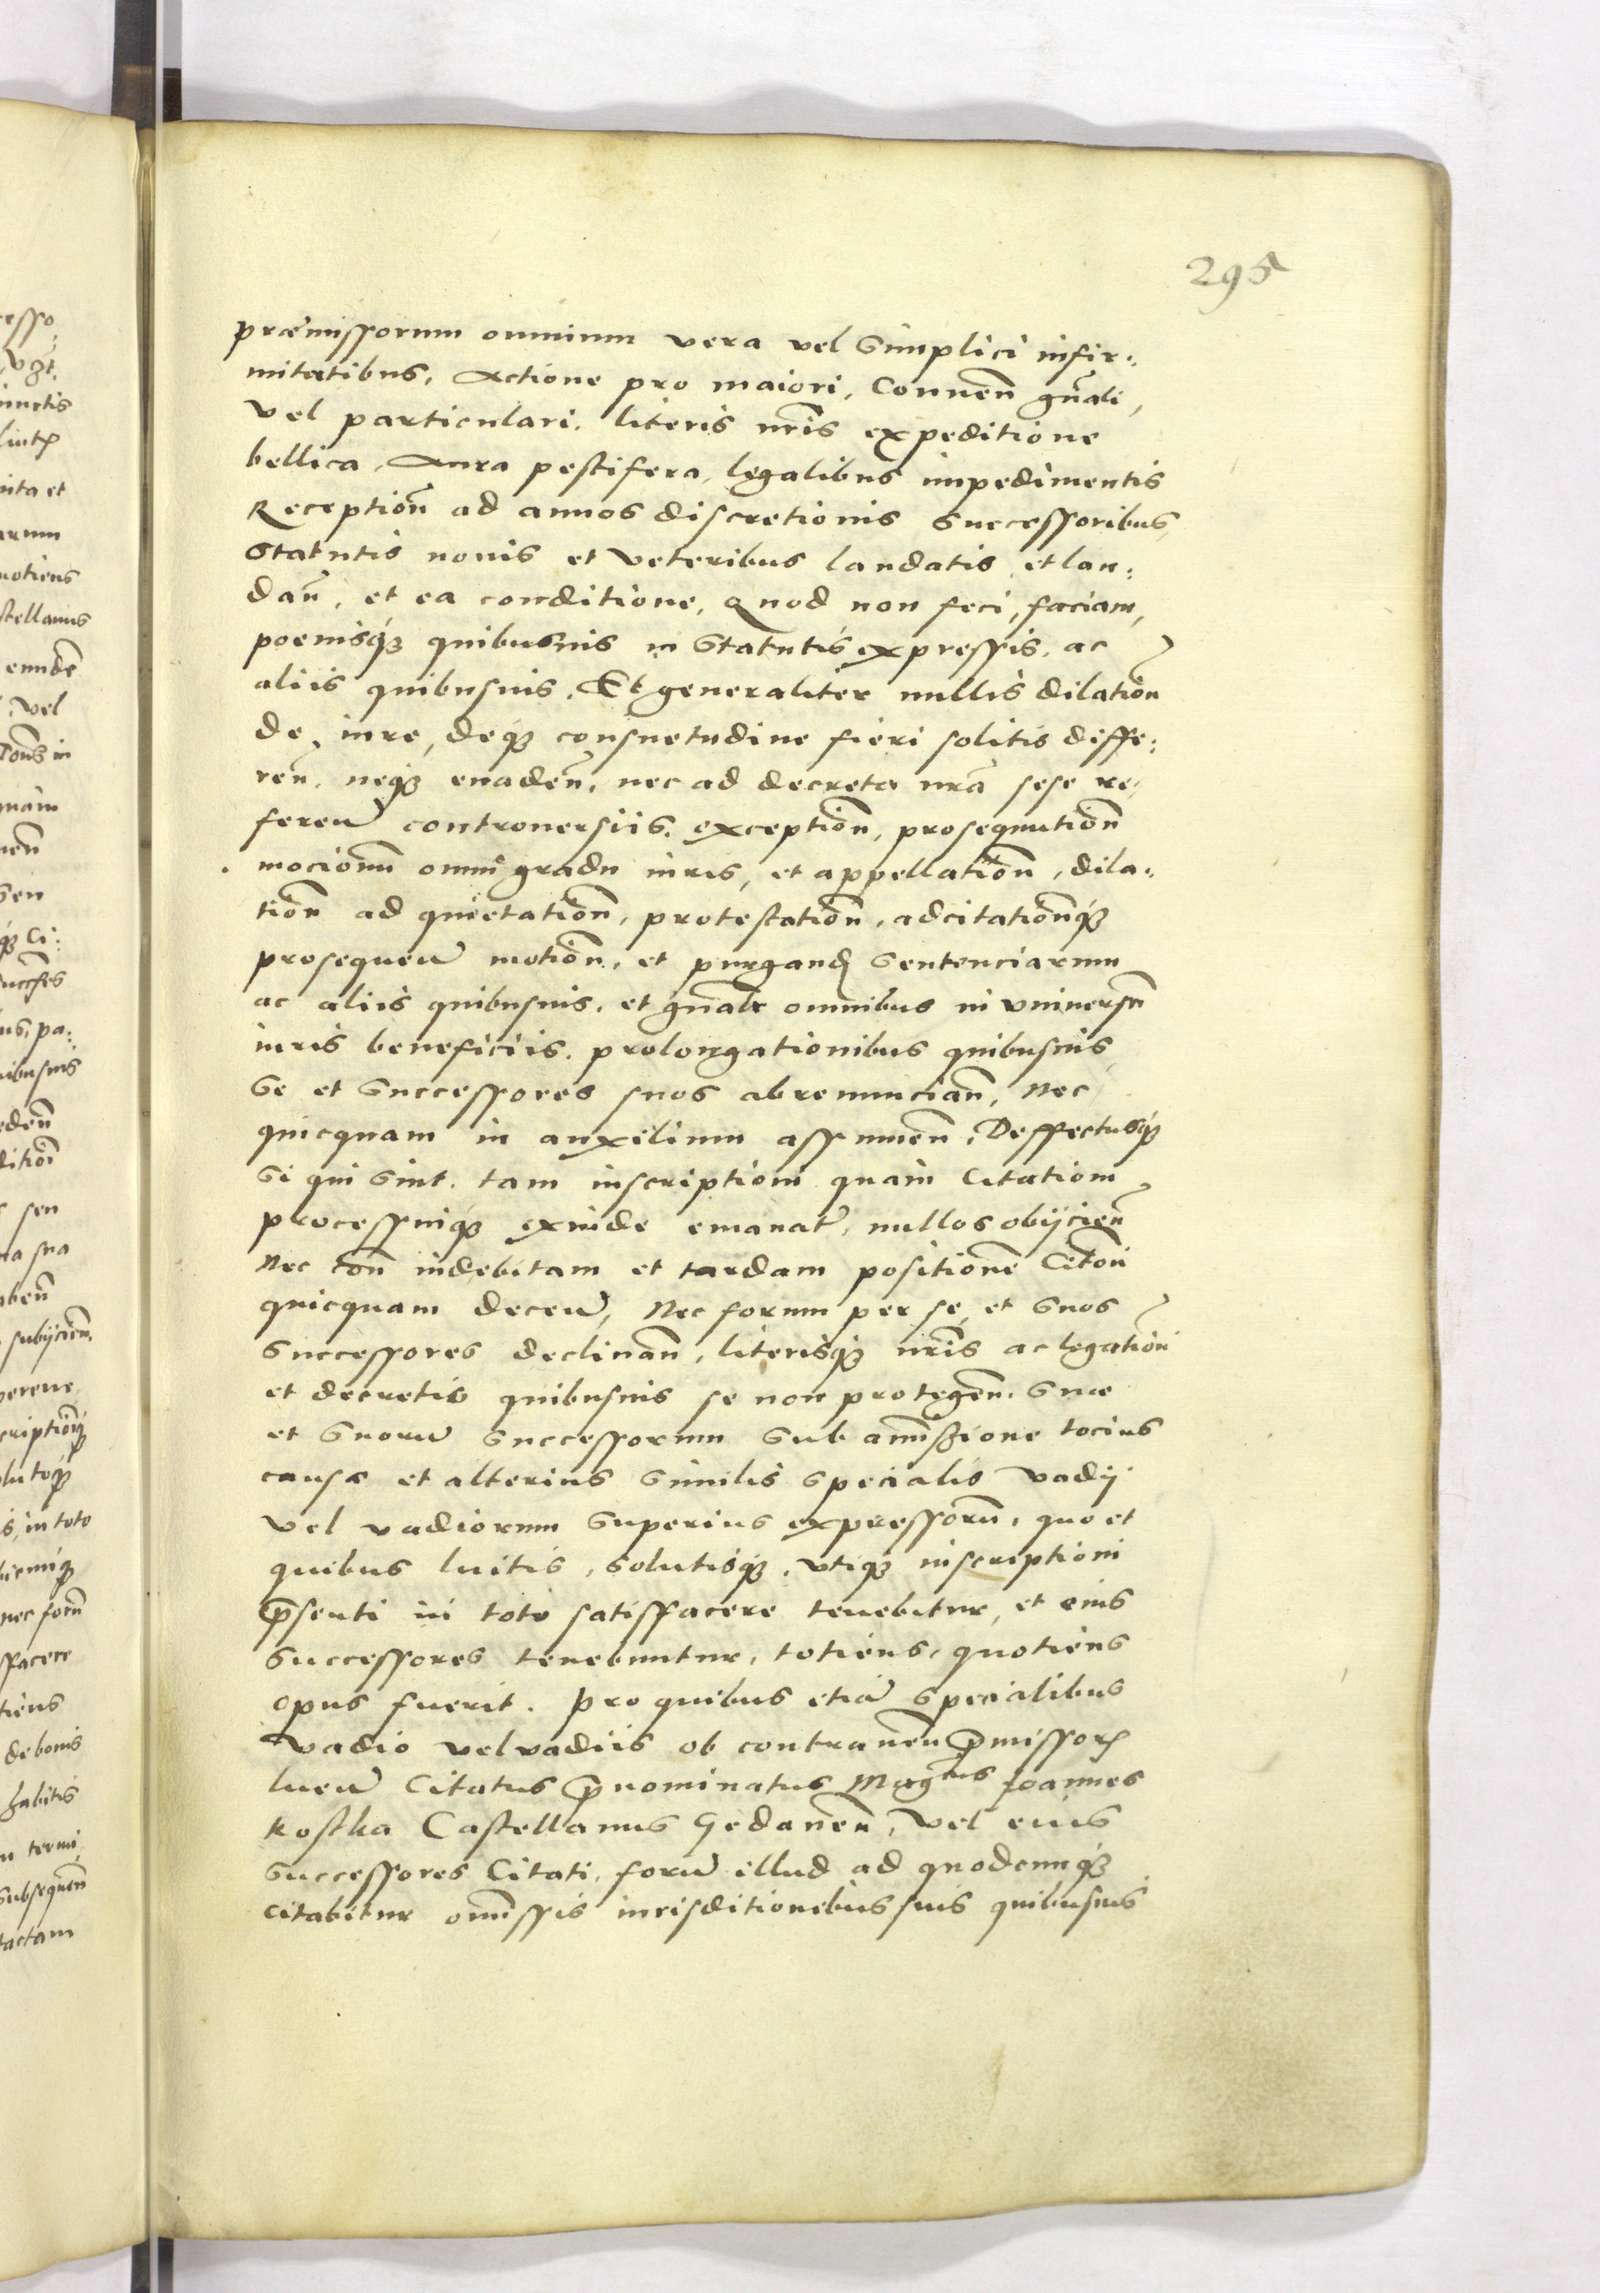 295
præmissorum omnium vera vel simplici infir:
mitatibus, Actione pro maiori, Conuen̄ gn̄ali,
vel particulari, literis nr̄is expeditione
bellica, Aura pestifera, legalibus impedimentis
Reception̄ ad annos discretionis successoribus,
Statutis nouis et veteribus laudatis et lau:
dan̄, et ea conditione, Quod non feci, faciam,
poenisq3 quibusuis in Statutis expressis, ac
aliis quibusuis, Et generaliter nullis dilation̄
de iure, deq3 consuetudine fieri solitis diffe:
ren̄, neq3 euaden̄, nec ad decreta nr̄a sese re:
feren̄ controuersiis, exception̄, prosequution̄
mocionū omni gradu iuris, et appellation̄, dila:
tion̄ ad quietation̄, protestation̄, adcitation̄q3
prosequen̄ motion̄, et purgand sentenciarum
ac aliis quibusuis, et gn̄alr omnibus in vniuersū
iuris beneficiis, prolongationibus quibusuis,
se et successores suos abrenuncian̄, Nec
quicquam in auxilium assumen̄, Deffectusq3
si qui sint, tam inscriptioni quam Citationi
processuiq3 exinde emanat, nullos obijcien̄
Nec con̄ indebitam et tardam positionē Citōni
quicquam dicen̄, Nec forum per se, et suos
successores declinan̄, literisq3 nr̄is ac legation̄
et decretis quibusuis se non protegen̄. Suæ
et suorū successorum sub amissione tocius
causæ et alterius similis specialis vadij
vel vadiorum superius expressorū, quo et
quibus luitis, solutisq3, vtiq3 inscriptioni
p̄senti in toto satisfacere tenebitur, et eius
successores tenebuntur, totiens, quotiens
opus fuerit. Pro quibus etiā specialibus
vadio vel vadiis ob contrauen̄ p̄missor
luen̄ Citatus p̄nominatus Mag.cus Joannes
Kostka Castellanus Gedanen̄, vel eius
successores Citati, forū illud ad quodcunq3
citabitur omissis iurisditionibus suis quibusuis